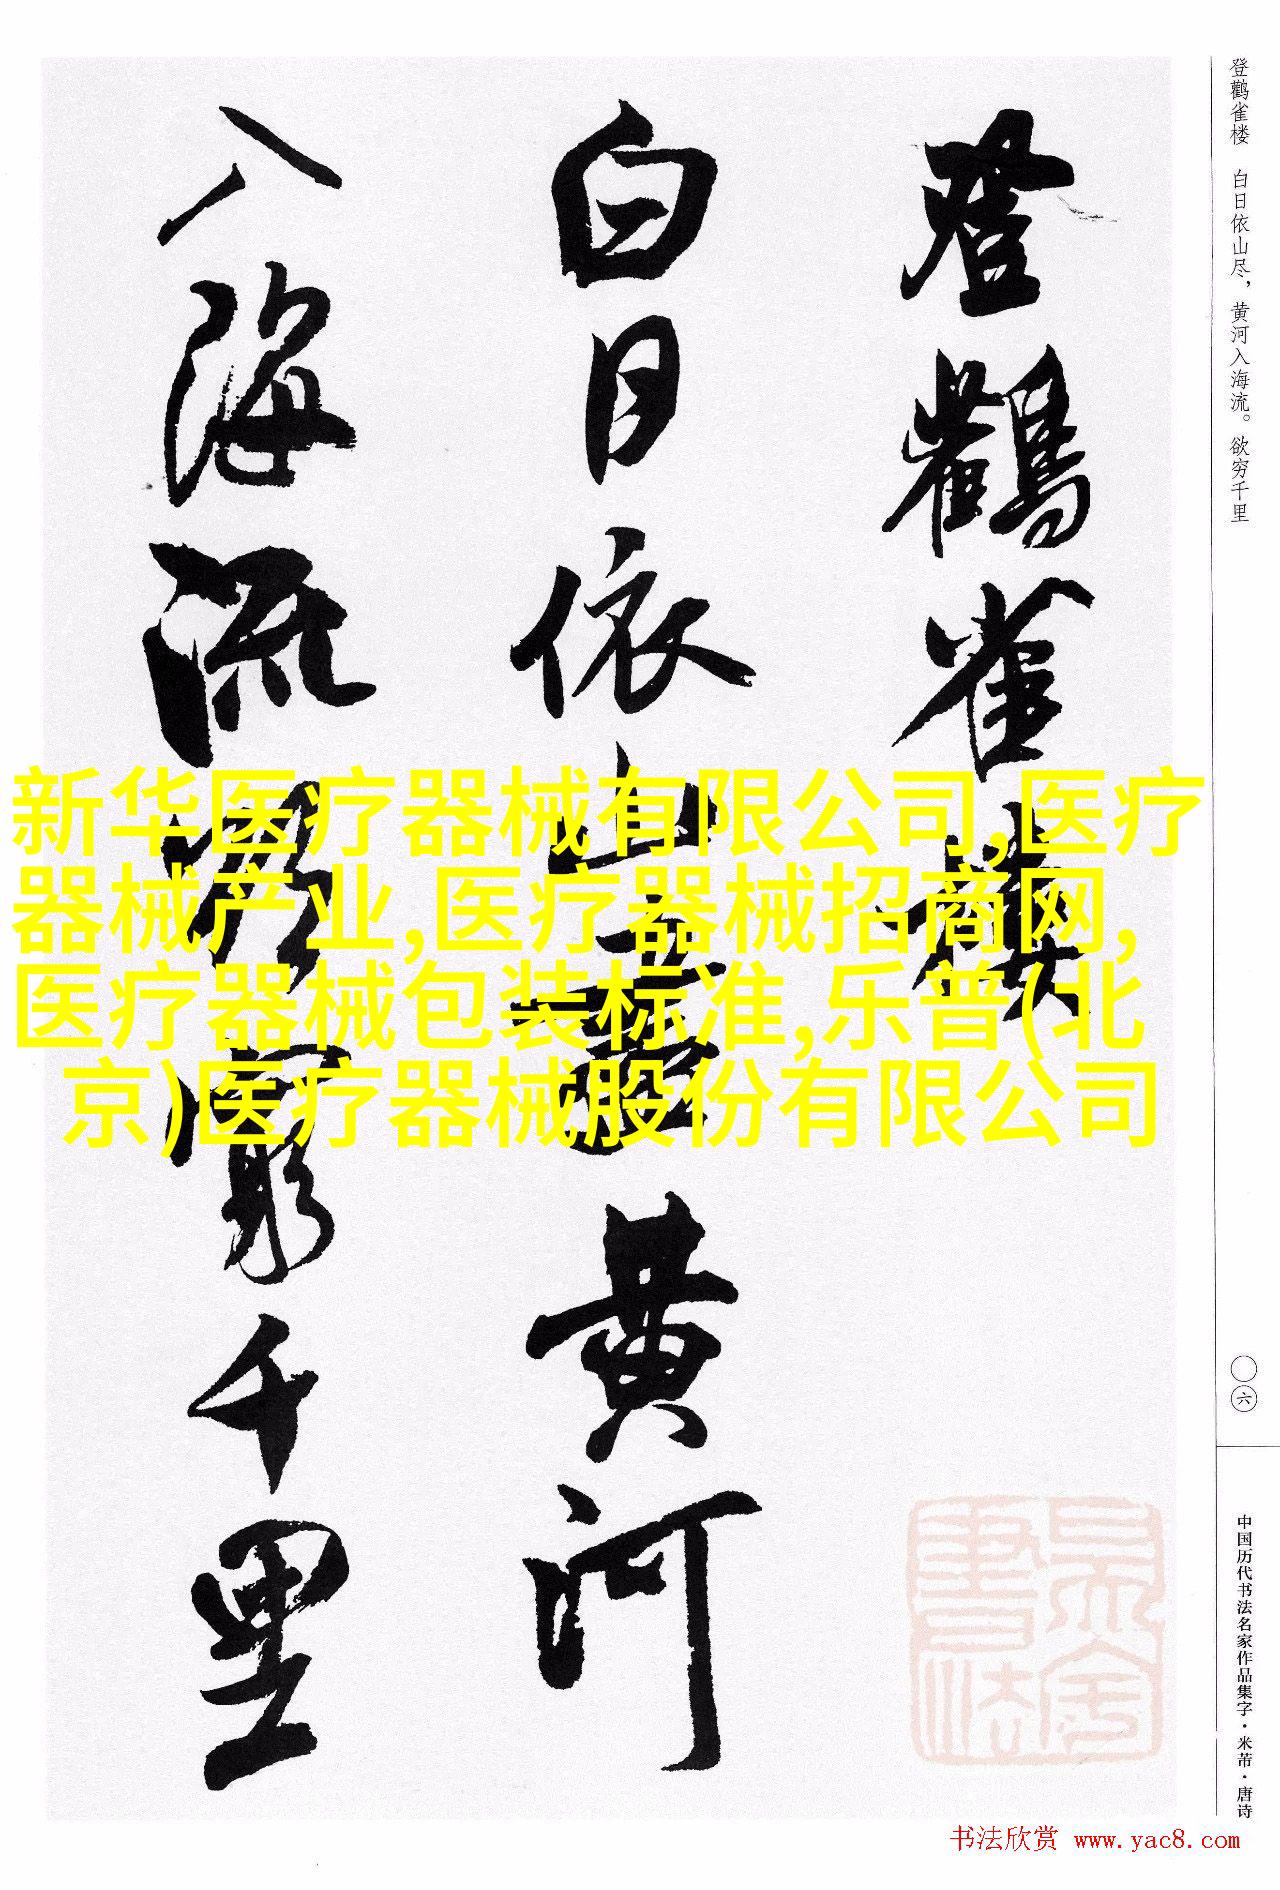 登鹳雀楼 白日依山尽，黄河入海流。欲穷千里
登鸛雀樓
白日依山盡黄河
入海流欲窮千里
新华医疗器械有限公司,医疗
器械产业,医疗器械招商网,
医疗器械包装标准,乐普(北
京)医疗器械股份有限公司
〇六
中国历代书法名家作品集字·米芾·唐诗
书法欣赏 www.yac8.com